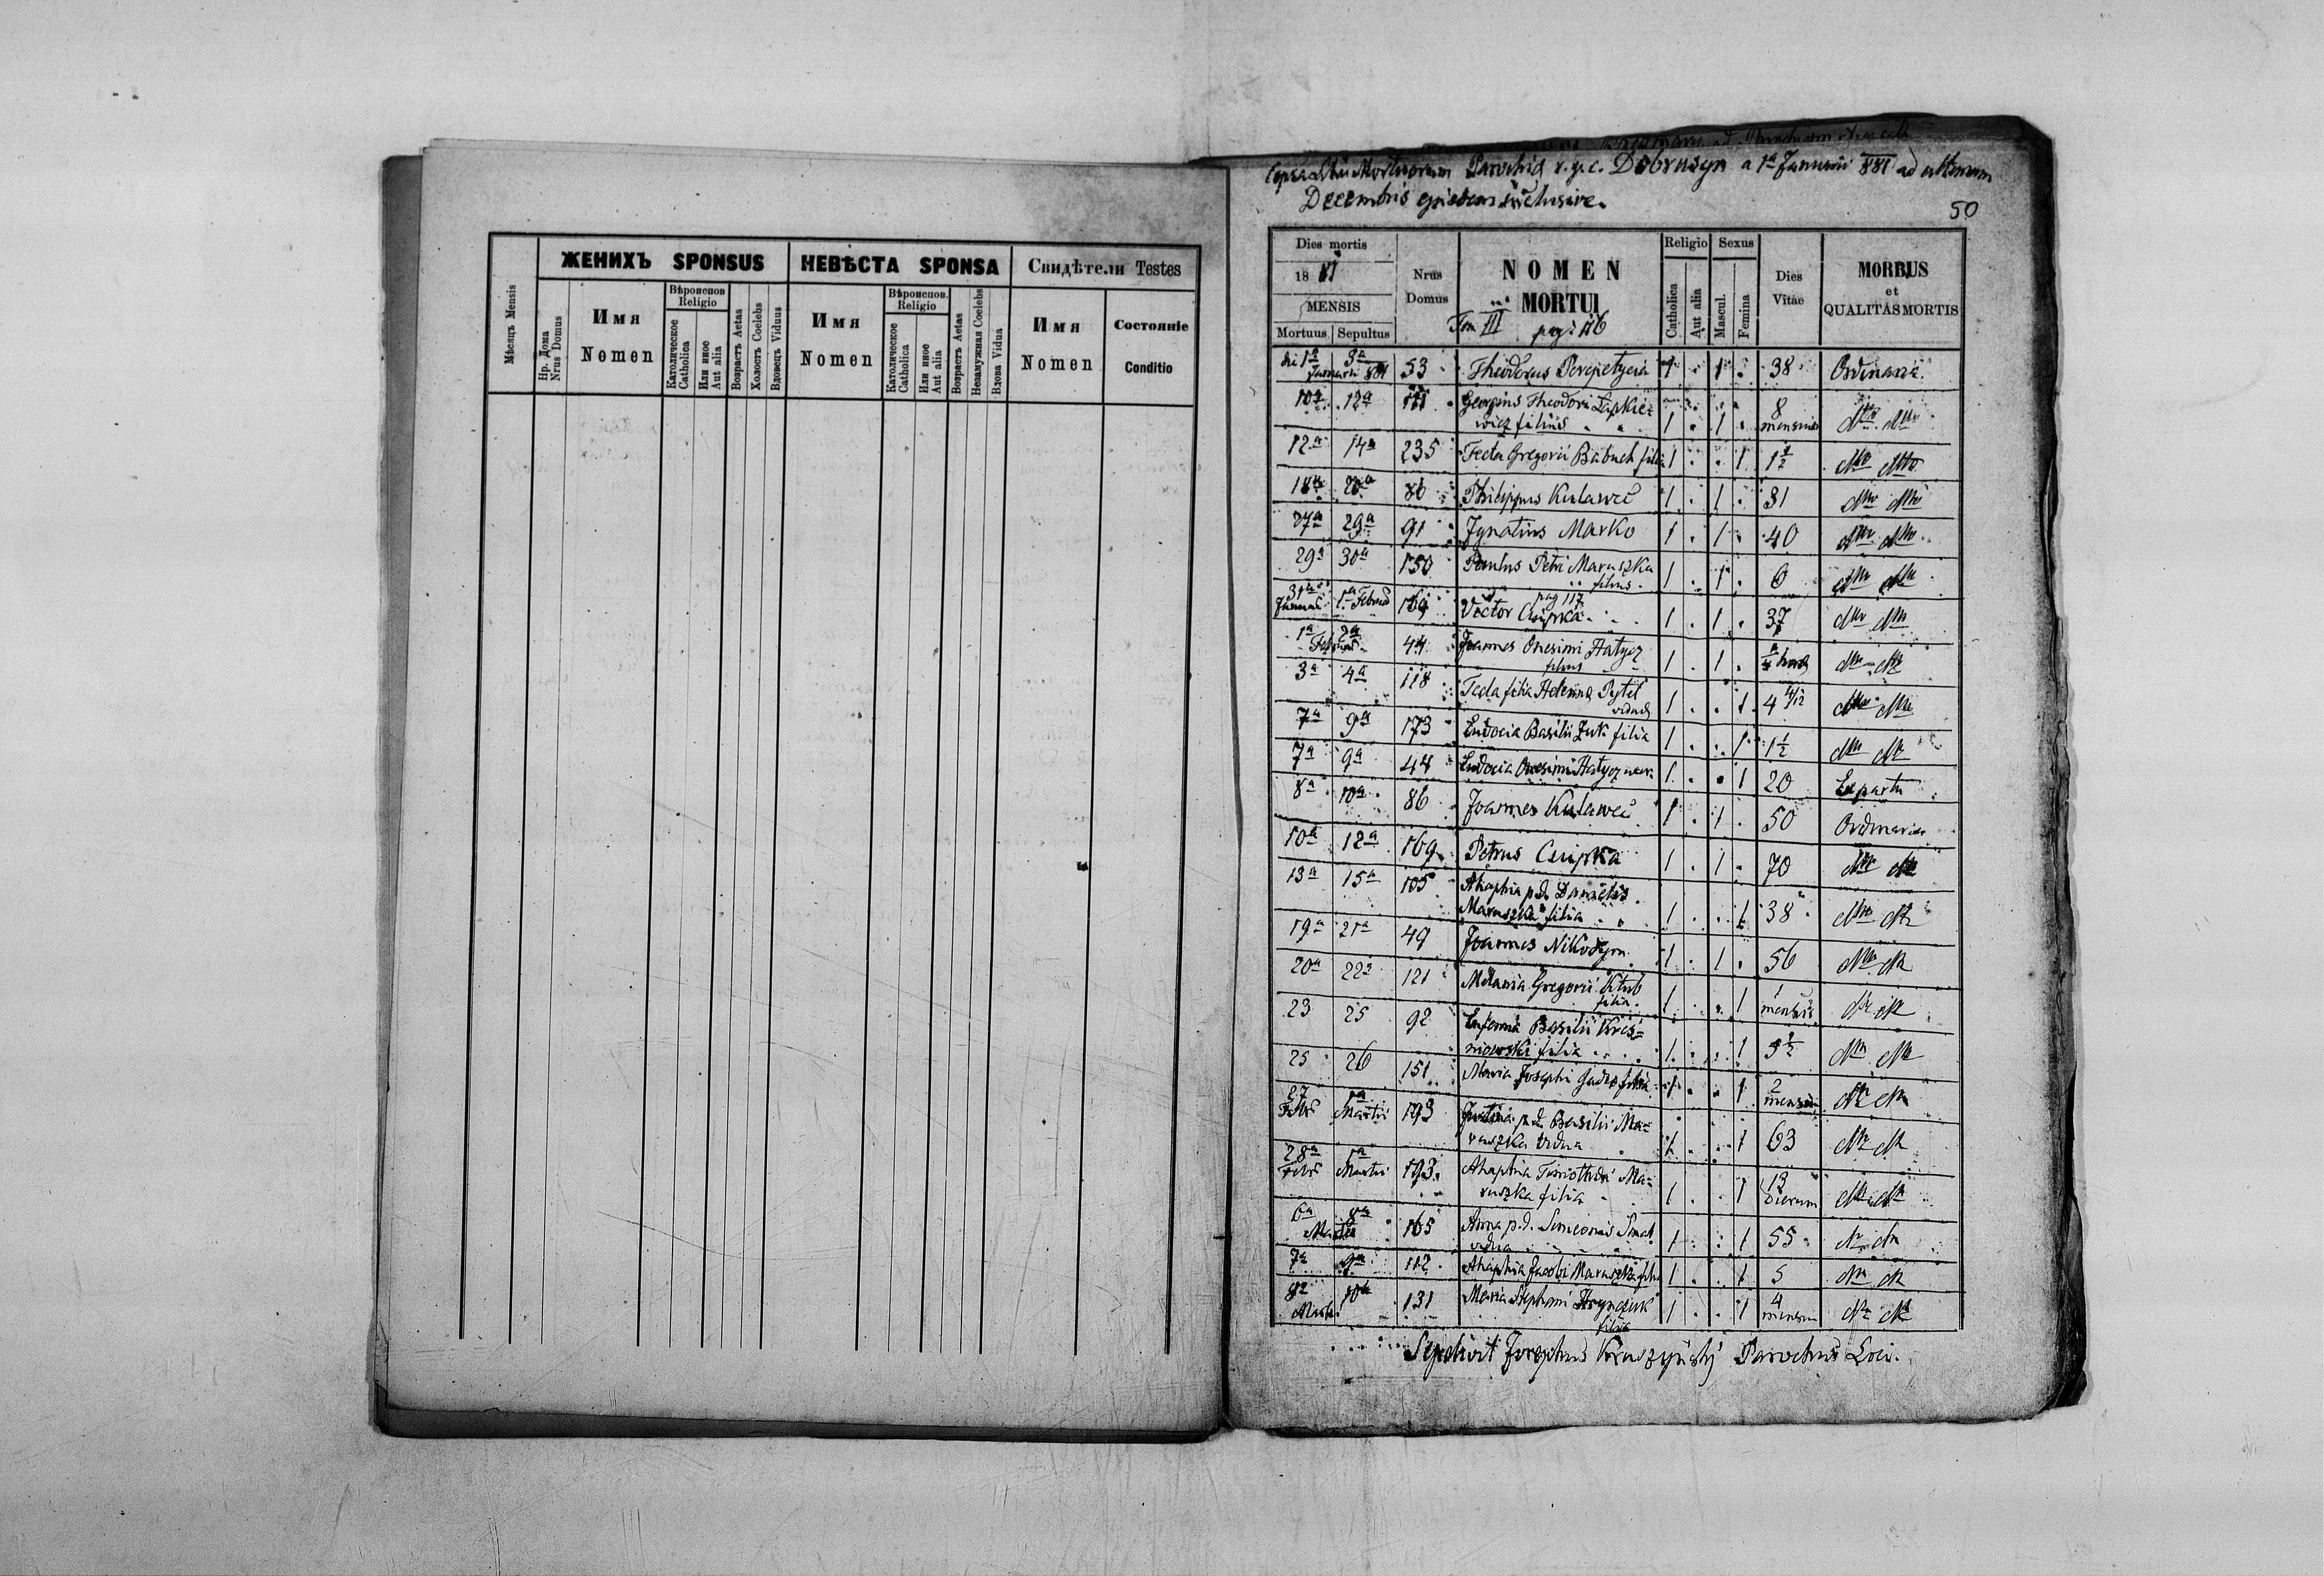 ЖЕНИХЪ SPONSUS
НЕВѢСТА SPONSA
Свидѣтели Testes
Мѣсяцъ Mensis
Нр. Дома Nrus Domus
Имя
Nomen
Вѣроиспов Religio
Католическое Catholica
Или иное Aut alia
Возрастъ Aetas
Холостъ Coelebs
Вдовецъ Viduus
Имя
Nomen
Вѣроиспов. Religio
Католическое Catholica
Или иное Aut alia
Возрастъ Aetas
Незамужная Coelebs
Вдова Vidua
Имя
Nomen
Состояніе
Conditio
Mortuorum Parochiae r. g. c. Dobrusyn a 1a Januarii 881 ad ultimam
Decembris ejusdem inclusive.
50
Dies mortis
18 81
MENSIS
Mortuus Sepultus
Nrus Domus
NOMEN
MORTUI
Tom III pag: 116
Religio
Catholica
Aut alia
Sexus
Mascul.
Femina
Dies Vitae
MORBUS
et
QUALITAS MORTIS
1a 3a Januarii 881 53 Theodorus Perepetycia 1 . 1 . 38 Ordinaria
10a 12a 111 Georgius Theodori Lipkie=
wicz filius 1 . 1 . 8 mensium dtto dtto
12a 14a 235 Tecla Gregorii Babuch filia 1 . . 1 1 1/2 dtto dtto
18a 20a 86 Philippus Kulawec 1 . 1 . 31 dtto dtto
27a 29a 91 Ignatius Marko 1 . 1 . 40 dtto dtto
29a 30a 150 Paulus Petri Maruszka
filius 1 . 1 . 6 dtto dtto
pag 117
31a Januarii 1a Februar 169 Victor Csipka 1 . 1 . 37 dtto dtto
1a 2a Februar 44 Joannes Onesimi Hatycz
filius 1 . 1 . dtto dtto
3a 4a 118 Tecla filia Helenna Pytel
viduae 1 . . 1 4 4/12 dtto dtto
7a 9a 173 Eudocia Basilii Zuk filia 1 . . 1 1 1/2 dtto dtto
7a 9a 44 Eudocia Onesimi Hatycz uxor 1 . . 1 20 Ex partu
8a 10a 86 Joannes Kulawec 1 . 1 . 50 Ordinaria
10a 12a 169 Petrus Csipka 1 . 1 . 70 dtto dtto
13a 15a 105 Ahaphia p.d. Danielis
Maruszka filia 1 . . 1 38 dtto dtto
19a 21a 49 Joannes Nikodym 1 . 1 . 56 dtto dtto
20a 22a 121 Melania Gregorii Klub
filia 1 . . 1 1 mensis dtto dtto
23 25 92 Eufemia Basilii Kres=
niowski filia 1 . . 1 3 1/2 dtto dtto
25 26 151 Maria Josephi filia 1 . . 1 2 mensium dtto dtto
27 Febr 1a Martii 193 Justina p.d. Basilii Ma=
ruszka vidua 1 . . 1 63 dtto dtto
28a Febr 1a Martii 193 Ahaphia Timothei Ma=
ruszka filia 1 . . 1 12 dierum dtto dtto
6a 8a Martii 165 Anna p.d. Simeonis
vidua 1 . . 1 55 dtto dtto
7a 9a 112 Ahaphia Jacobi Maruszka filia 1 . . 1 5 dtto dtto
8a 10a Martii 131 Maria Stephani Hrynczuk
filia 1 . . 1 4 mensium dtto dtto
Sepelivit Josephus Kruszyński Parochus Loci.